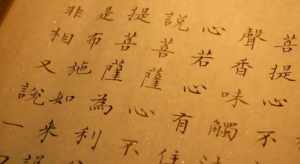 菩提心不
聲香味觸
心若心有住
說菩薩心不
提菩薩為利
是布施如來
非相又說一